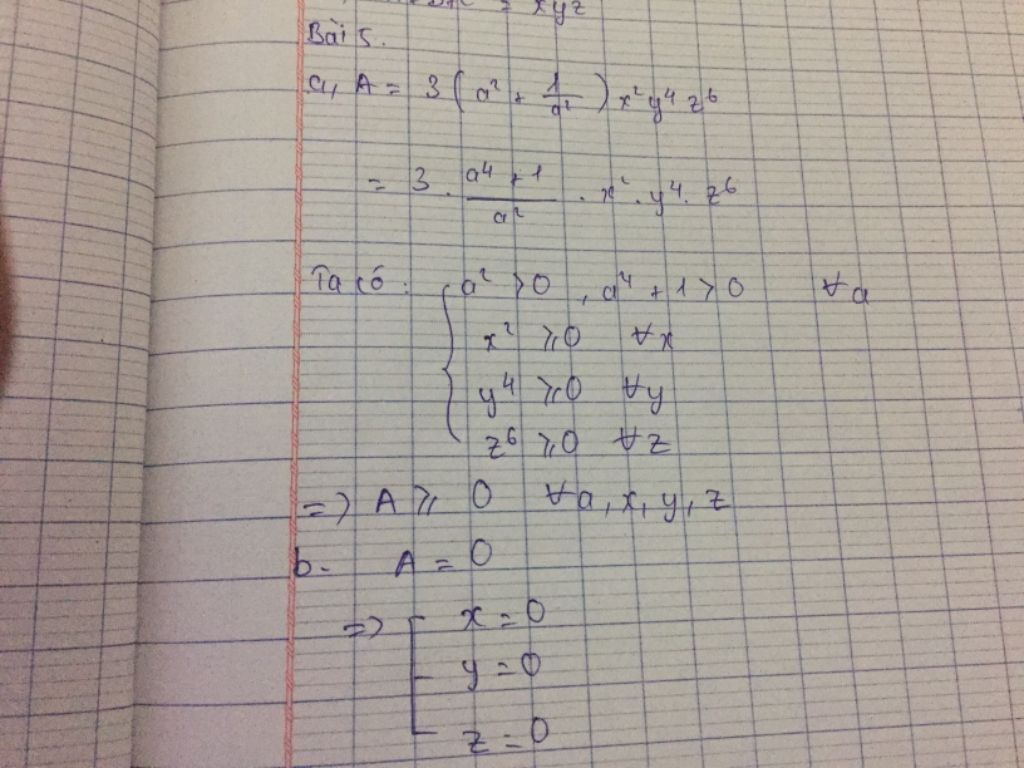 = xyz
Bài 5.
a, A = 3 ( a² + 1/a² ) x² y⁴ z⁶
= 3 . (a⁴ + 1)/a² . x² . y⁴ . z⁶
Ta có : { a² > 0 , a⁴ + 1 > 0 ∀a
x² ⩾ 0 ∀x
y⁴ ⩾ 0 ∀y
z⁶ ⩾ 0 ∀z
=> A ⩾ 0 ∀a, x, y, z
b. A = 0
=> [ x = 0
y = 0
z = 0